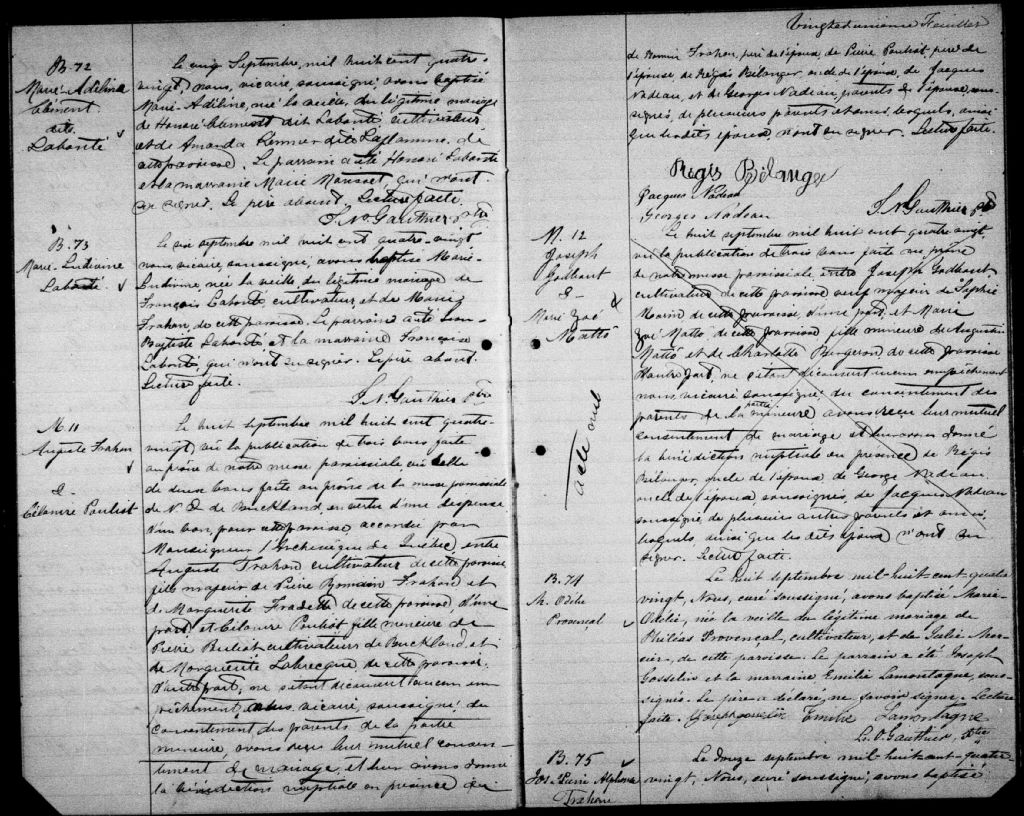 B. 72
Marie-Adélina
Clément
dite
Labonté
Le cinq Septembre, mil huit cent quatre-
vingt, nous, vicaire, soussigné, avons baptisé
Marie-Adéline, née la veille, du légitime mariage
de Honoré Clément dit Labonté cultivateur,
et de Amanda dite Laflamme, de
cette paroisse. Le parrain a été Honoré Labonté
et la marraine Marie qui n'ont
su signer. Le père absent. Lecture faite.
J. N. Gauthier ptre
B. 73
Marie-Ludivine
Labonté
Le six septembre mil huit cent quatre-vingt
nous, vicaire, soussigné, avons baptisé Marie-
Ludivine, née la veille du légitime mariage de
François Labonté cultivateur, et de
Trahan, de cette paroisse. Le parrain a été Jean-
Baptiste Labonté et la marraine Françoise
Labonté, qui n'ont su signer. Le père absent.
Lecture faite.
J. N. Gauthier ptre
M 11
Auguste Trahan
&
Célanire Pouliot
Le huit septembre mil huit cent quatre-
vingt, vu la publication de trois bans faite
au prône de notre messe paroissiale vu celle
de deux bans faite au prône de la messe paroissiale
de N. D. de Buckland, en vertu d'une dispense
d'un ban, pour cette paroisse accordée par
Monseigneur l'Archevêque de Québec, entre
Auguste Trahan cultivateur de cette paroisse
fils majeur de Pierre Romain Trahan et
de Marguerite Fradette de cette paroisse d'une
part, et Célanire Pouliot fille mineure de
Pierre Pouliot cultivateur de Buckland, et
de Marguerite Labrecque de cette paroisse,
d'autre part, ne s'étant découvert aucun em-
pêchement, nous, vicaire, soussigné, du
consentement des parents de la partie
mineure avons reçu leur mutuel consen-
tement de mariage, et leur avons donné
la bénédiction nuptiale en présence de
Vingt et unième Feuillet
de Romain Trahan, père de l'époux, de Pierre Pouliot, père de
l'épouse, de Régis Bélanger, oncle de l'épouse, de Jacques
Nadeau, et de Georges Nadeau, parents de l'épouse, sous-
signés, de plusieurs parents et amis, lesquels, ainsi
que lesdits époux n'ont su signer. Lecture faite.
Régis Bélanger
Jacques Nadeau
Georges Nadeau
J. N. Gauthier ptre
M. 12
Joseph
Godbout
&
Marie Zoé
Matto
acte nul
Le huit septembre mil huit cent quatre vingt,
vu la publication de trois bans faite au prône
de notre messe paroissiale entre Joseph Godbout
cultivateur de cette paroisse veuf majeur de Sophie
Morin de cette paroisse, d'une part, et Marie
Zoé Matto de cette paroisse fille mineure de Augustin
Matto et de Charlotte Bergeron de cette paroisse
d'autre part, ne s'étant découvert aucun empêchement
nous, vicaire soussigné, du consentement des
parents de la partie mineure avons reçu leur mutuel
consentement de mariage et leur avons donné
la bénédiction nuptiale en présence de Régis
Bélanger, oncle de l'épouse, de George Nadeau
oncle de l'épouse soussignés, de Jacques Nadeau
soussigné de plusieurs autres parents et amis,
lesquels, ainsi que les dits époux n'ont su
signer. Lecture faite.
B. 74
M. Odélie
Provençal
Le huit septembre mil-huit-cent-quatre
vingt, Nous, curé soussigné, avons baptisé Marie-
Odélie, née la veille du légitime mariage de
Philéas Provençal, cultivateur, et de Julie
de cette paroisse. Le parrain a été Joseph
Gosselin et la marraine Emilie Lamontagne, sous-
signés. Le père a déclaré ne savoir signer. Lecture
faite. Joseph gosselin Emilie Lamontagne
Ls. O. Gauthier, Ptre
B. 75
Jos. Pierre Alphonse
Trahan
Le douze septembre mil-huit-cent-quatre-
vingt, Nous, curé soussigné, avons baptisé